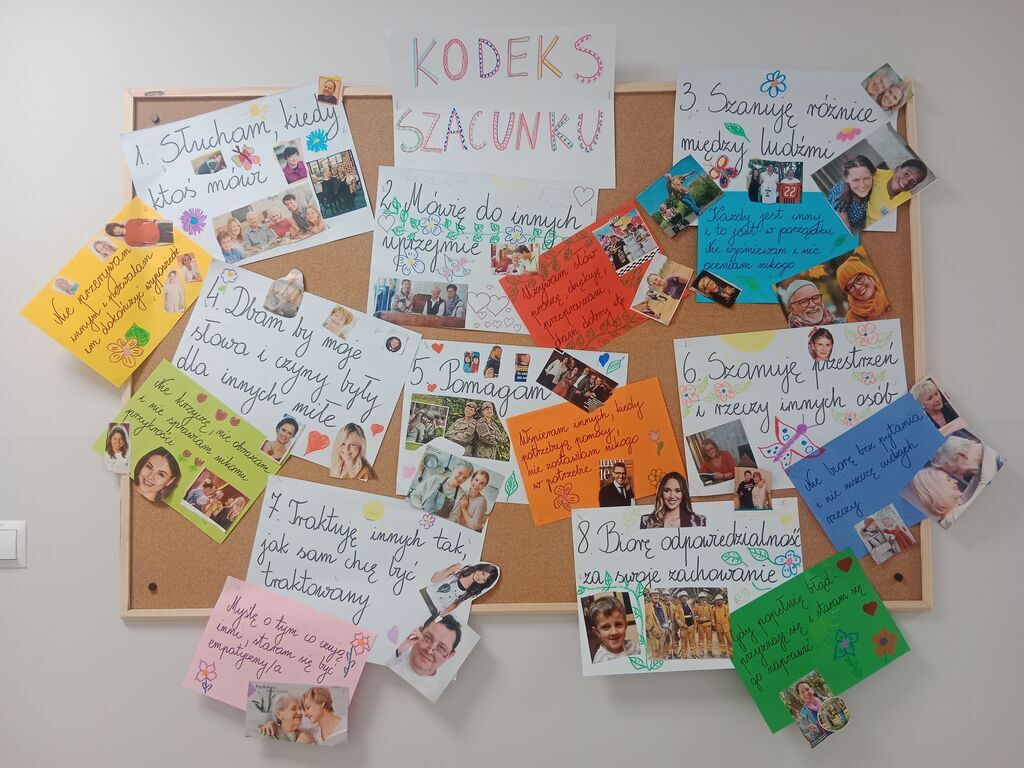 KODEKS
SZACUNKU
1. Słucham, kiedy
ktoś mówi
Nie przerywam
innym i pozwalam
im dokończyć wypowiedź
2. Mówię do innych
uprzejmie
Używam słów:
proszę, dziękuję,
przepraszam,
dzień dobry, itp
3. Szanuję różnice
między ludźmi
22
Każdy jest inny
i to jest w porządku
Nie wyśmiewam i nie
oceniam nikogo
4. Dbam by moje
słowa i czyny były
dla innych miłe
Nie krzyczę, nie obrażam
i nie sprawiam nikomu
przykrości
5. Pomagam
Wspieram innych, kiedy
potrzebują pomocy,
nie zostawiam nikogo
w potrzebie
6. Szanuję przestrzeń
i rzeczy innych osób
Nie biorę bez pytania
i nie niszczę cudzych
rzeczy
7. Traktuję innych tak,
jak sam chcę być
traktowany
Myślę o tym co czują
inni, staram się być
empatyczny/a
8. Biorę odpowiedzialność
za swoje zachowanie
Gdy popełnię błąd -
przyznaję się i staram się
go naprawić